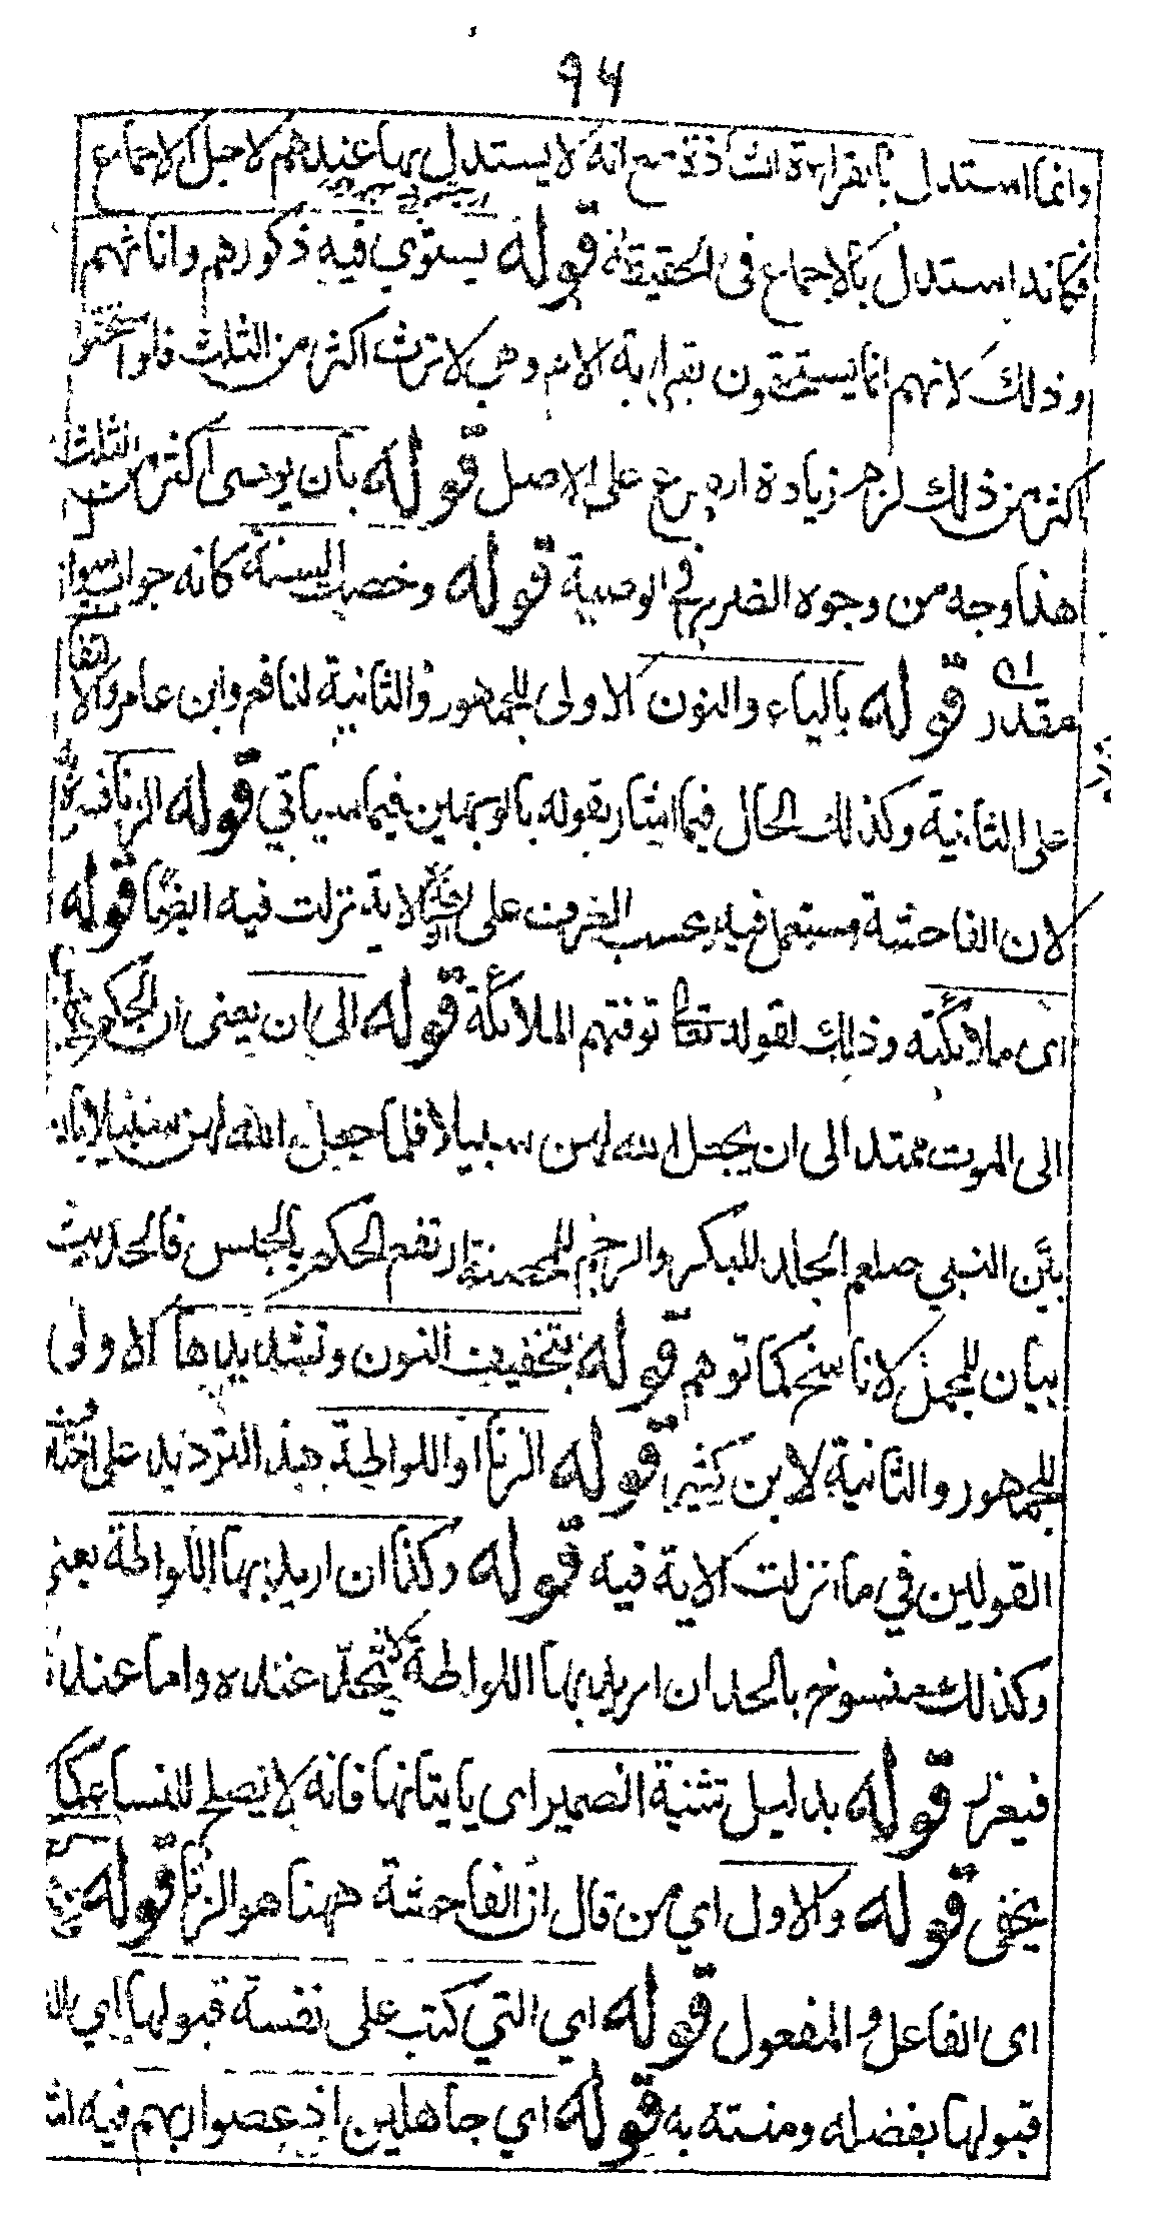 ٩٤
وانما استدل بالقراءة الشاذة مع انه لا يستدل بها عندهم لاجل الاجماع
فكانه استدل بالاجماع فى الحقيقة قوله يستوي فيه ذكورهم واناثهم
وذلك لانهم انما يستحقون بقرابة الام وهى لا ترث اكثر من الثلث فلو استحقوا
اكثر من ذلك لزم زيادة الفرع على الاصل قوله بان يوصى اكثر من الثلث
هذا وجه من وجوه الضرر في الوصية قوله وخصت السنة كانه جواب سوال
مقدر قوله بالياء والنون الاولى للجمهور والثانية لنافع وابن عامر والالتفات
على الثانية وكذلك الحال فيما اشار بقوله بالوجهين فيما سياتي قوله الزنا
لان الفاحشة مستعمل فيه بحسب العرف على الاية نزلت فيه ايضا قوله
اى ملائكته وذلك لقوله تعالى توفتهم الملائكة قوله الى ان يعنى ان الحكم
الى الموت ممتد الى ان يجعل الله لهن سبيلا فلما جعل الله لهن سبيلا بان
بيّن النبي صلعم الجلد للبكر والرجم للمحصنة ارتفع الحكم بالحبس فالحديث
بيان للمجمل لا ناسخ كما توهم قوله بتخفيف النون وتشديدها الاولى
للجمهور والثانية لابن كثير قوله الزنا او اللواطة هذا الترديد على
القولين في ما نزلت الاية فيه قوله وكذا ان اريد بها اللواطة يعنى
وكذلك منسوخ بالحد ان اريد بها اللواطة لانه يحد عنده واما عندنا
فيعزر قوله بدليل تثنية الضمير اى ياتيانها فانه لا يصلح للنساء كما
يخفى قوله والاول اي من قال ان الفاحشة ههنا هو الزنا قوله
اى الفاعل والمفعول قوله اي التي كتب على نفسه قبولها اي
قبولها بفضله ومنته به قوله اي جاهلين اذ عصوا ربهم فيه